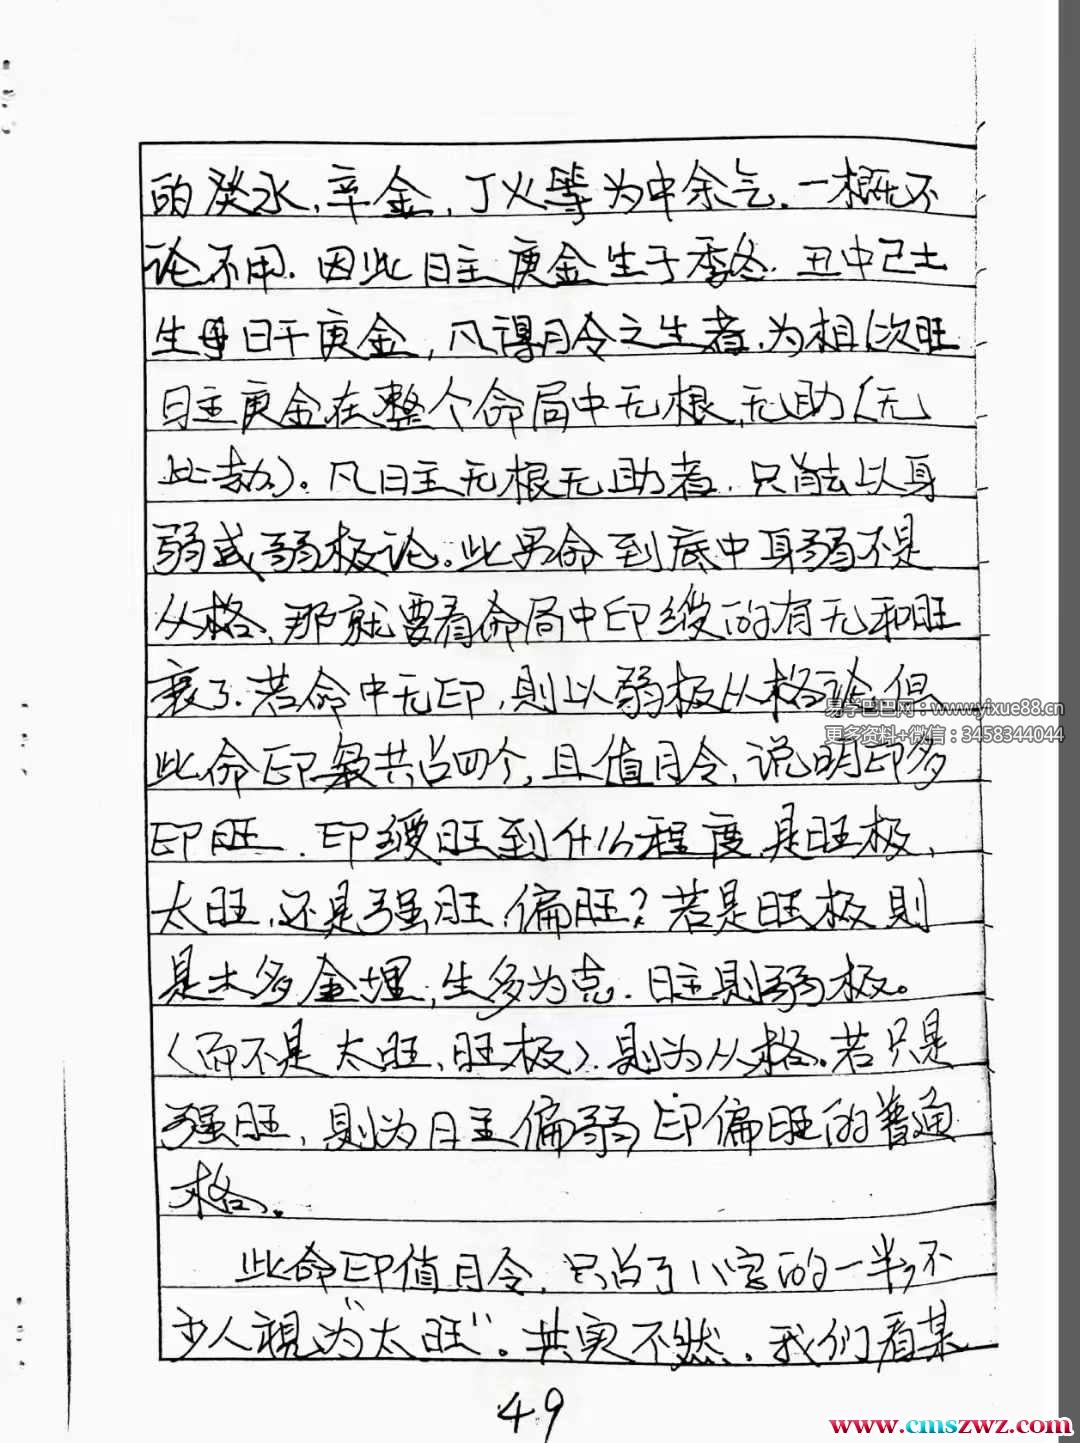 的癸水,辛金,丁火等为中余气.一概不
论不用.因此日主庚金生于季冬.丑中己土
生日干庚金,凡得月令之生者,为相(次旺
日主庚金在整个命局中无根,无助(无
比劫)。凡日主无根无助者,只能以身
弱或弱极论。此男命到底中身弱不是
从格,那就要看命局中印绶的有无和旺
衰了.若命中无印,则以弱极从格论,但
易学巴巴网:www.yixue88.cn
更多资料+微信:3458344044
此命印枭共占四个,且值月令,说明印多
印旺.印绶旺到什么程度,是旺极,
太旺,还是强旺,偏旺?若是旺极则
是土多金埋,生多为克.日主则弱极。
(而不是太旺,旺极).则为从格。若只是
强旺,则为日主偏弱,印偏旺的普通
格。
此命印值月令,只占了八字的一半,不
少人视为“太旺”。其实不然。我们看某
49
www.cmszwz.com